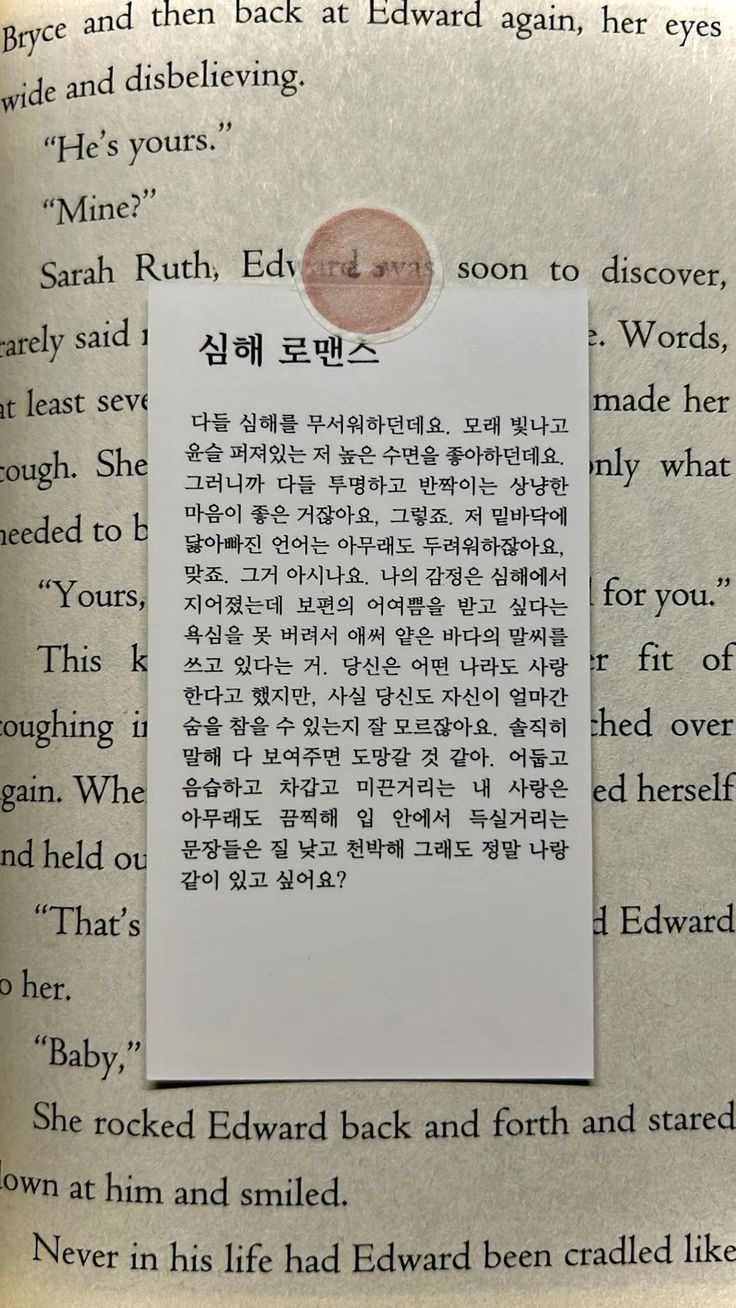 Bryce and then back at Edward again, her eyes
wide and disbelieving.
“He’s yours.”
“Mine?”
Sarah Ruth, Edward was soon to discover,
rarely said
e. Words,
at least seve
made her
cough. She
only what
needed to b
“Yours,
for you.”
This k
er fit of
coughing in
ched over
again. Whe
ed herself
and held ou
“That’s
d Edward
to her.
“Baby,”
She rocked Edward back and forth and stared
down at him and smiled.
Never in his life had Edward been cradled like
심해 로맨스
다들 심해를 무서워하던데요. 모래 빛나고
윤슬 퍼져있는 저 높은 수면을 좋아하던데요.
그러니까 다들 투명하고 반짝이는 상냥한
마음이 좋은 거잖아요, 그렇죠. 저 밑바닥에
닳아빠진 언어는 아무래도 두려워하잖아요,
맞죠. 그거 아시나요. 나의 감정은 심해에서
지어졌는데 보편의 어여쁨을 받고 싶다는
욕심을 못 버려서 애써 얕은 바다의 말씨를
쓰고 있다는 거. 당신은 어떤 나라도 사랑
한다고 했지만, 사실 당신도 자신이 얼마간
숨을 참을 수 있는지 잘 모르잖아요. 솔직히
말해 다 보여주면 도망갈 것 같아. 어둡고
음습하고 차갑고 미끈거리는 내 사랑은
아무래도 끔찍해 입 안에서 득실거리는
문장들은 질 낮고 천박해 그래도 정말 나랑
같이 있고 싶어요?